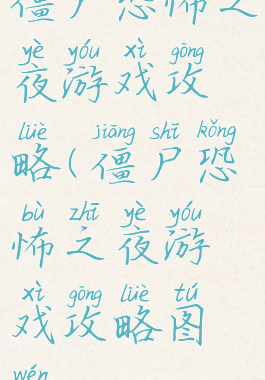 僵尸恐怖之
yè yóu xì gōng
夜游戏攻
lüè jiāng shī kǒng
略(僵尸恐
bù zhī yè yóu
怖之夜游
xì gōng lüè tú
戏攻略图
wén